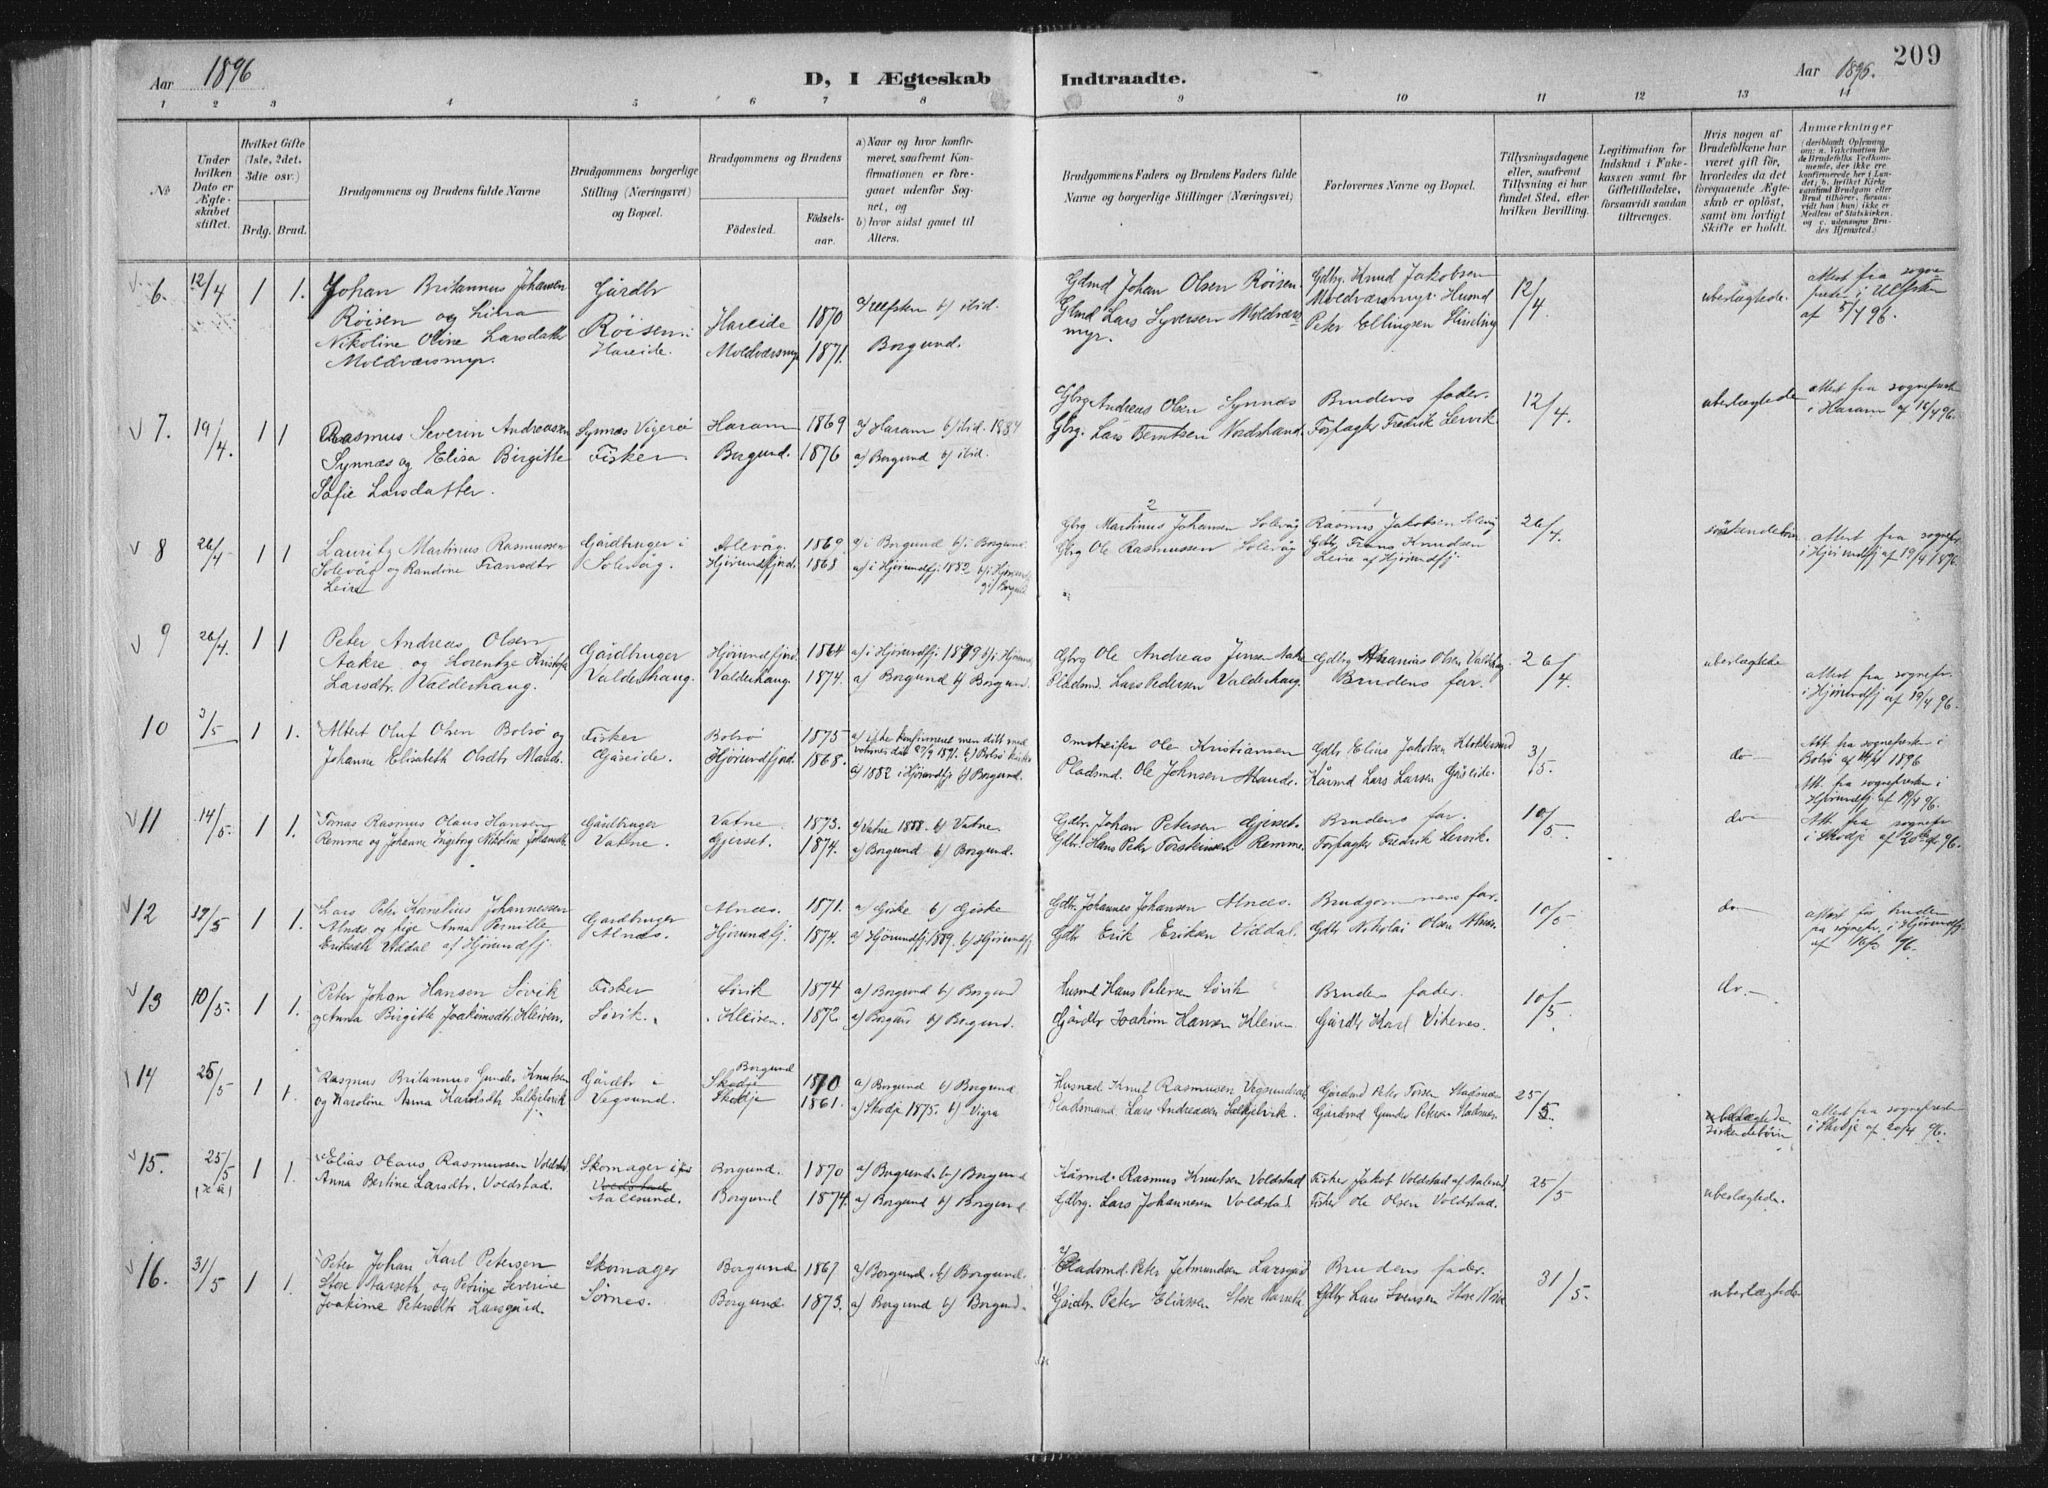 209
Aar 1896
D, I Ægteskab
Indtraadte.
Aar 1896.
1 2 3 4 5 6 7 8 9 10 11 12 13 14
№
Under hvilken Dato er Ægteskabet stiftet.
Hvilket Gifte (1ste, 2det, 3die osv.)
Brdg. Brud.
Brudgommens og Brudens fulde Navne
Brudgommens borgerlige Stilling (Næringsvei) og Bopæl.
Brudgommens og Brudens
Födested.
Födselsaar.
a) Naar og hvor konfirmeret, saafremt Konfirmationen er foregaaet udenför Sognet, og
b) hvor sidst gaaet til Alters.
Brudgommens Faders og Brudens Faders fulde Navne og borgerlige Stillinger (Næringsvei)
Forlovernes Navne og Bopæl.
Tillysningsdagene eller, saafremt Tillysning ei har fundet Sted, efter hvilken Bevilling.
Legitimation for Indskud i Enkekassen samt for Giftetilladelse, forsaavidt saadan tiltrænges.
Hvis nogen af Brudefolkene har været gift för, hvorledes da det foregaaende Ægteskab er oplöst, samt om lovligt Skifte er holdt.
Anmærkninger
6. 12/4 1 1. Johan Britannus Johansen Gårdbr Glmd Johan Olsen Röisen. Gdbr. Knud Jakobsen 12/4 ubeslægtede. attest fra sogne
Röisen og Lina Röisen i Hareide 1870 a/ Ulfsten b/ ibid. Glmd Lars Syversen Moldværs Moldværsmyr. Husmd af 5/4 96.
Nikoline Oline Larsdatter Hareide. Moldværsmyr 1871. Borgund. myr. Peter Ellingsen
Moldværsmyr.
7. 19/4 1 1 Rasmus Severin Andreassen Synnæs Vigerö Haram 1869 a/ Haram b/ ibid. 1884 Gbrg. Andreas Olsen Synnæs Brudens fader. 12/4 ubeslægtede attest fra sognepresten
Synnæs og Elisa Birgitte Fisker. Borgund. 1876 a/ Borgund b/ ibid. Gbrg. Lars Berntsen Nordstrand. Forpagter Fredrik Lervik. i Haram af 18/4 96.
Sofie Larsdatter.
8 26/4 1 1 Lauritz Martinus Rasmussen Gårdbruger i Solevåg. 1869 a/ i Borgund b/ i Borgund Gbrg Martinus Johansen Solevåg Rasmus Jakobsen Solevåg 26/4 söskendebörn attest fra sognepr.
Solevåg og Randine Fransdtr Solevåg. Hjörundfjord. 1868 a/ i Hjörundfj. 1882 b/ i Hjörundfj. Gbrg Ole Rasmussen Solevåg Gdbr. Frans Knudsen i Hjörundfj af 19/4 1896.
Leira og i Borgund Leira af Hjörundfj
9 26/4 1 1 Peter Andreas Olsen Gårdbruger Hjörundfjord. 1864 a/ i Hjörundfj. 1879 b/ i Hjörundfj. Gbrg Ole Andreas Jensen Aakre Gdbrg Ananias Olsen Valderhaug 26/4 ubeslægtede attest fra sognepr.
Aakre og Lorentze Kristofa Valderhaug. Valderhaug. 1874. a/ Borgund b/ Borgund. Pladsmd. Lars Pedersen Valderhaug. Brudens far. i Hjörundfj af 19/4 96.
Larsdtr. Valderhaug.
10 3/5 1 1. Albert Oluf Olsen Bolsö og Fisker Bolsö 1875 a/ ikke konfirmeret men Ole Kristiansen Gdbr Elias Jakobsen 3/5. do Att. fra sognepresten i
Johanne Elisabeth Olsdtr Maude. Gåseide. Hjörundfjord. 1868. a/ 1882 i Hjörundfj b/ Borgund. Pladsmd. Ole Johnsen Maude. Kårmd Lars Larsen Gåseide. Bolsö af 14/4 1896
Att. fra sognepresten i Hjörundfj. af 19/4 96.
11 14/5. 1 1. Tomas Rasmus Olaus Hansen Gårdbruger Vatne. 1873. a/ Vatne 1888. b/ Vatne. Gdbr. Johan Petersen Gjerset. Brudens far. 10/5 do Att. fra sognepr
Remme og Johanne Ingeborg Nikoline Johansdtr. Vatne. Gjerset. 1874. a/ Borgund b/ Borgund. Gdbr. Hans Peter Torsteinsen Remme. Forpagter Fredrik Lervik. i Skodje af 96.
12 17/5 1 1. Lars Peter Kornelius Johannessen Gårdbruger Alnæs. 1871. a/ Giske b/ Giske Gdbr. Johannes Johansen Alnæs. Brudgommens far. 10/5 do attest for bruden
Alnæs og pige Anna Pernille Alnæs. Hjörundfj. 1874. a/ Hjörundfj. 1889. b/ Hjörundfj. Gdbr Erik Eriksen Viddal. Gdbr Nikolai Olsen Alnæs. fra sognepr. i Hjörundfj.
Eriksdtr Viddal af Hjörundfj. af 96.
13 10/5. 1 1. Peter Johan Hansen Sövik Fisker Sövik 1874 a/ Borgund b/ Borgund Husmd Hans Petersen Sövik Brudens fader. 10/5 do.
og Anna Birgitte Joakimsdtr. Kleiven. Sövik. Kleiven. 1872. a/ Borgund b/ Borgund. Gårdbr Joakim Hansen Kleiven Gårdbr Karl Vikenes.
14 25/5 1 1. Rasmus Britannus Gunder Knutsen Gårdbr i Borgund Skodje 1870 a/ Borgund b/ Borgund Husmd Knut Rasmusen Vegsundvåg Gårdmd Peter 25/5. ubeslægtede attest fra sognepresten
og Karoline Anna Larsdtr Solkjelsvik. Vegsund. Skodje 1861. a/ Skodje 1875. b/ Vigra Pladsmand Lars Andreassen Solkjelsvik. Gårdmd Gunder Peterson söskendebörn i Skodje af 20/4 96.
15. 25/5 1 1. Elias Olaus Rasmussen Voldstad Skomager i Borgund. 1870 a/ Borgund. b/ Borgund Kårmd. Rasmus Knutsen Voldstad Fisker Jakob Voldstad af Aalesund 25/5 ubeslægtede.
Anna Bertine Larsdtr. Voldstad. Voldstad Aalesund. Borgund 1874. a/ Borgund b/ Borgund Gdbrg. Lars Johannesen Voldstad Fisker Ole Olsen Voldstad.
16. 31/5 1 1. Peter Johan Karl Petersen Skomager Borgund 1867 a/ Borgund. b/ Borgund. Pladsmd. Peter Jetmundsen Larsgård Brudens fader. 31/5. ubeslægtede
Store Aarseth og Petrine Severine Sörnes. Borgund. 1873. a/ Borgund b/ Borgund. Gårdbr. Peter Eliassen Store Aarseth. Gdbr Lars Svensen
Joakime Petersdtr Larsgård.